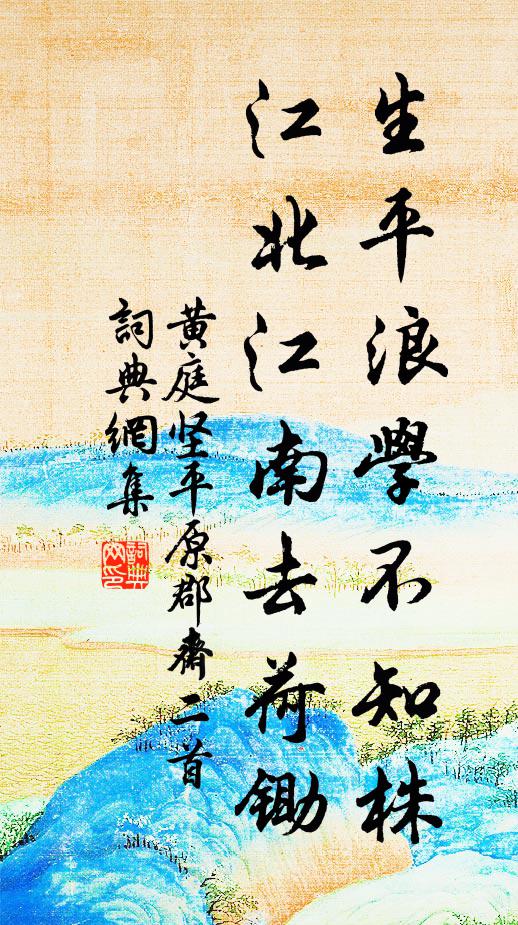 生平浪學不知株
江北江南去荷鋤
黃庭坚平原郡齋二首
詞典網集
詞典
网印